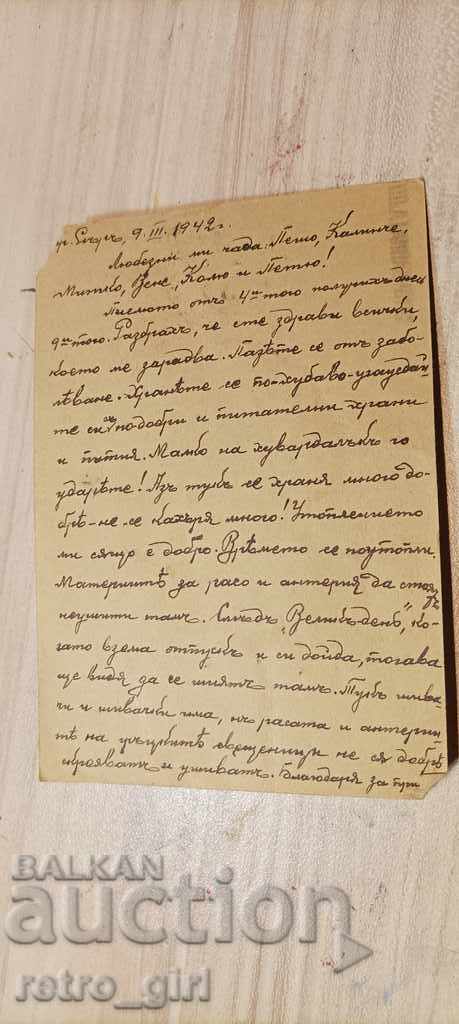 гр. Сяръ, 9. III. 1942 г.
Любезни ми чада Пешо, Калинче,
Митко, Вене, Колю и Петю!
Писмото отъ 4-того получихъ днесъ
9-того. Разбрахъ, че сте здрави всички,
което ме зарадва. Пазѣте се отъ забо-
лѣване. Хранѣте се по-хубаво-
те съ по-добри и питателни храни
и пития. Мамо на хувардалъкъ го
ударѣте! Азъ тукъ се храня много до-
брѣ - не се кахъря много! Отоплението
ми сящо е добро. Врѣмето се поутопли.
Материитѣ за расо и антерия да стоятъ
неушити тамъ. Слѣдъ „Великъ-день", ко-
гато взема отпускъ и си дойда, тогава
ще видя да се шиятъ тамъ. Тукъ шива-
чи и шивачки има, нъ расата и антерии-
тѣ на гръцкитѣ свещеници не ся добрѣ
скроявятъ и ушиватъ. Благодаря за при
BALKAN
auction
retro_girl